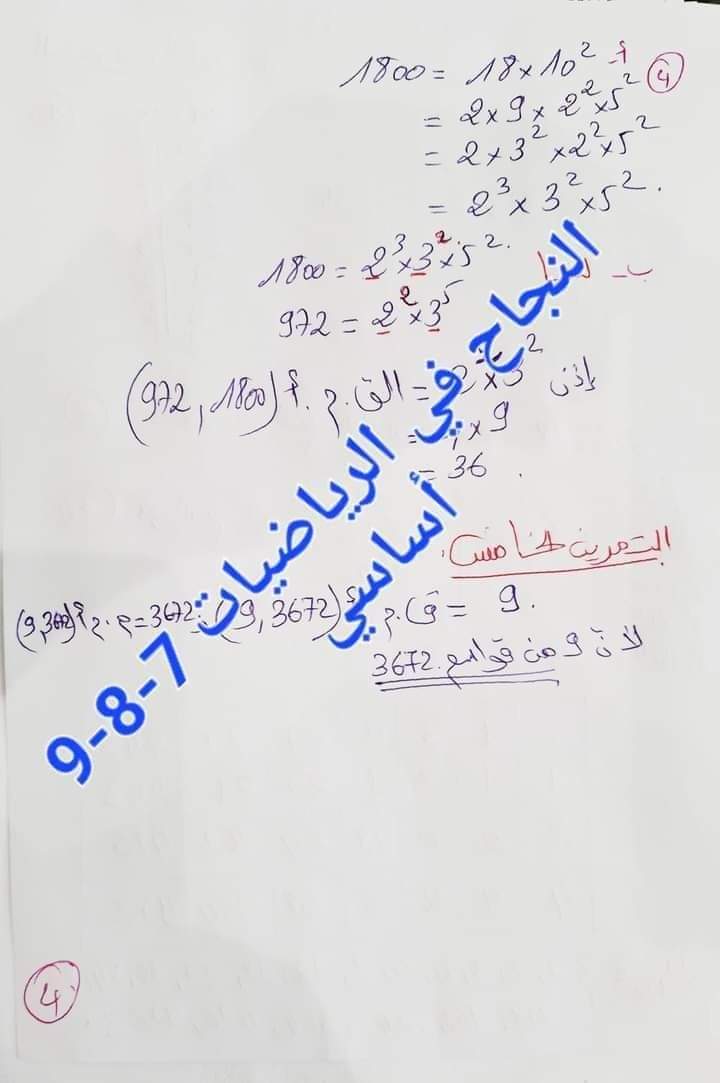 ④ أ- 1800 = 18 × 10²
= 2 × 9 × 2² × 5²
= 2 × 3² × 2² × 5²
= 2³ × 3² × 5².
ب- لنا
1800 = 2³ × 3² × 5².
972 = 2² × 3⁵
إذن 2² × 3² = (972, 1800) الق.م.أ
= 4 × 9
= 36.
التمرين الخامس:
9. = ق.م.أ (9, 3672) م.م.أ (9, 3672) = 3672
لأن 9 من قواسم 3672.
النجاح في الرياضيات 7-8-9
أساسي
④